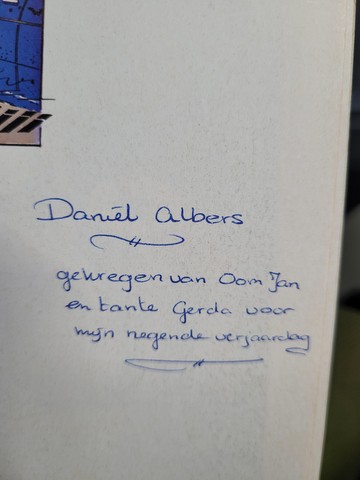 Daniël Albers
gekregen van Oom Jan
en tante Gerda voor
mijn negende verjaardag